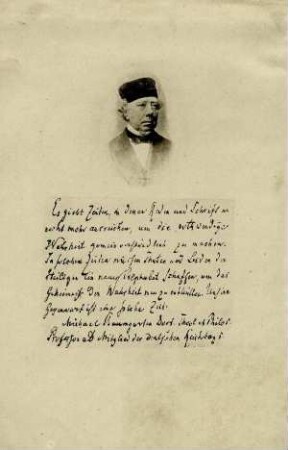 Es giebt Zeiten, in denen Reden und Schriften
nicht mehr ausreichen, um die nothwendige
Wahrheit gemeinverständlich zu machen.
In solchen Zeiten müssen Thaten und Leiden der
Heiligen ein neues Alphabet schaffen, um das
Geheimniß der Wahrheit neu zu enthüllen. Unsere
Gegenwart ist eine solche Zeit.
Michael Baumgarten Doct. Theol. et Philos.
Professor a.D. Mitglied des deutschen Reichstags